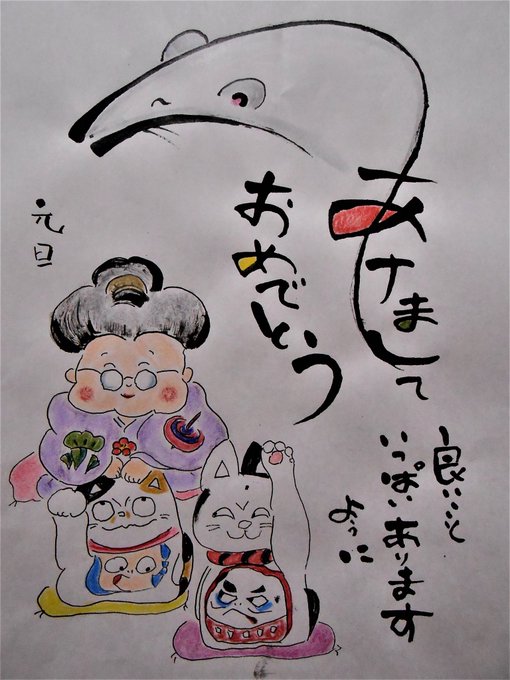 あけまして
おめでとう
良いこと
いっぱいあります
ように
元旦